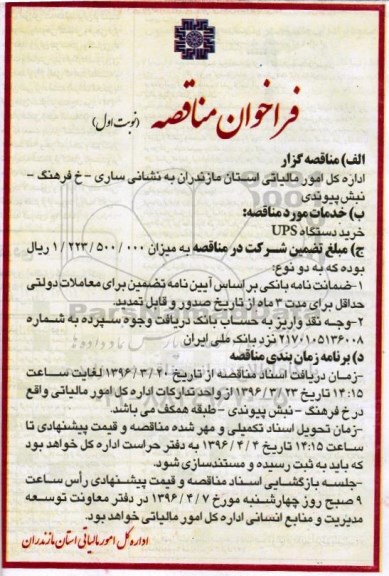 فراخوان مناقصه (نوبت اول)
الف) مناقصه گزار
اداره کل امور مالیاتی استان مازندران به نشانی ساری - خ فرهنگ -
نبش پیوندی
ب) خدمات مورد مناقصه:
خرید دستگاه UPS
ج) مبلغ تضمین شرکت در مناقصه به میزان ۱/۲۲۳/۵۰۰/۰۰۰ ریال
بوده که به دو نوع:
۱- ضمانت نامه بانکی بر اساس آیین نامه تضمین برای معاملات دولتی
حداقل برای مدت ۳ ماه از تاریخ صدور و قابل تمدید.
۲- وجه نقد واریز به حساب بانک دریافت وجوه سپرده به شماره
۲۱۷۰۱۰۵۱۳۶۰۰۸ نزد بانک ملی ایران
د) برنامه زمان بندی مناقصه
- زمان دریافت اسناد مناقصه از تاریخ ۱۳۹۶/۳/۲۰ لغایت ساعت
۱۴:۱۵ تاریخ ۱۳۹۶/۳/۲۳ از واحد تدارکات اداره کل امور مالیاتی واقع
در خ فرهنگ - نبش پیوندی - طبقه همکف می باشد.
- زمان تحویل اسناد تکمیلی و مهر شده مناقصه و قیمت پیشنهادی تا
ساعت ۱۴:۱۵ تاریخ ۱۳۹۶/۴/۴ به دفتر حراست اداره کل خواهد بود
که باید به ثبت رسیده و مستندسازی شود.
- جلسه بازگشایی اسناد مناقصه و قیمت پیشنهادی رأس ساعت
۹ صبح روز چهارشنبه مورخ ۱۳۹۶/۴/۷ در دفتر معاونت توسعه
مدیریت و منابع انسانی اداره کل امور مالیاتی خواهد بود.
اداره کل امور مالیاتی استان مازندران